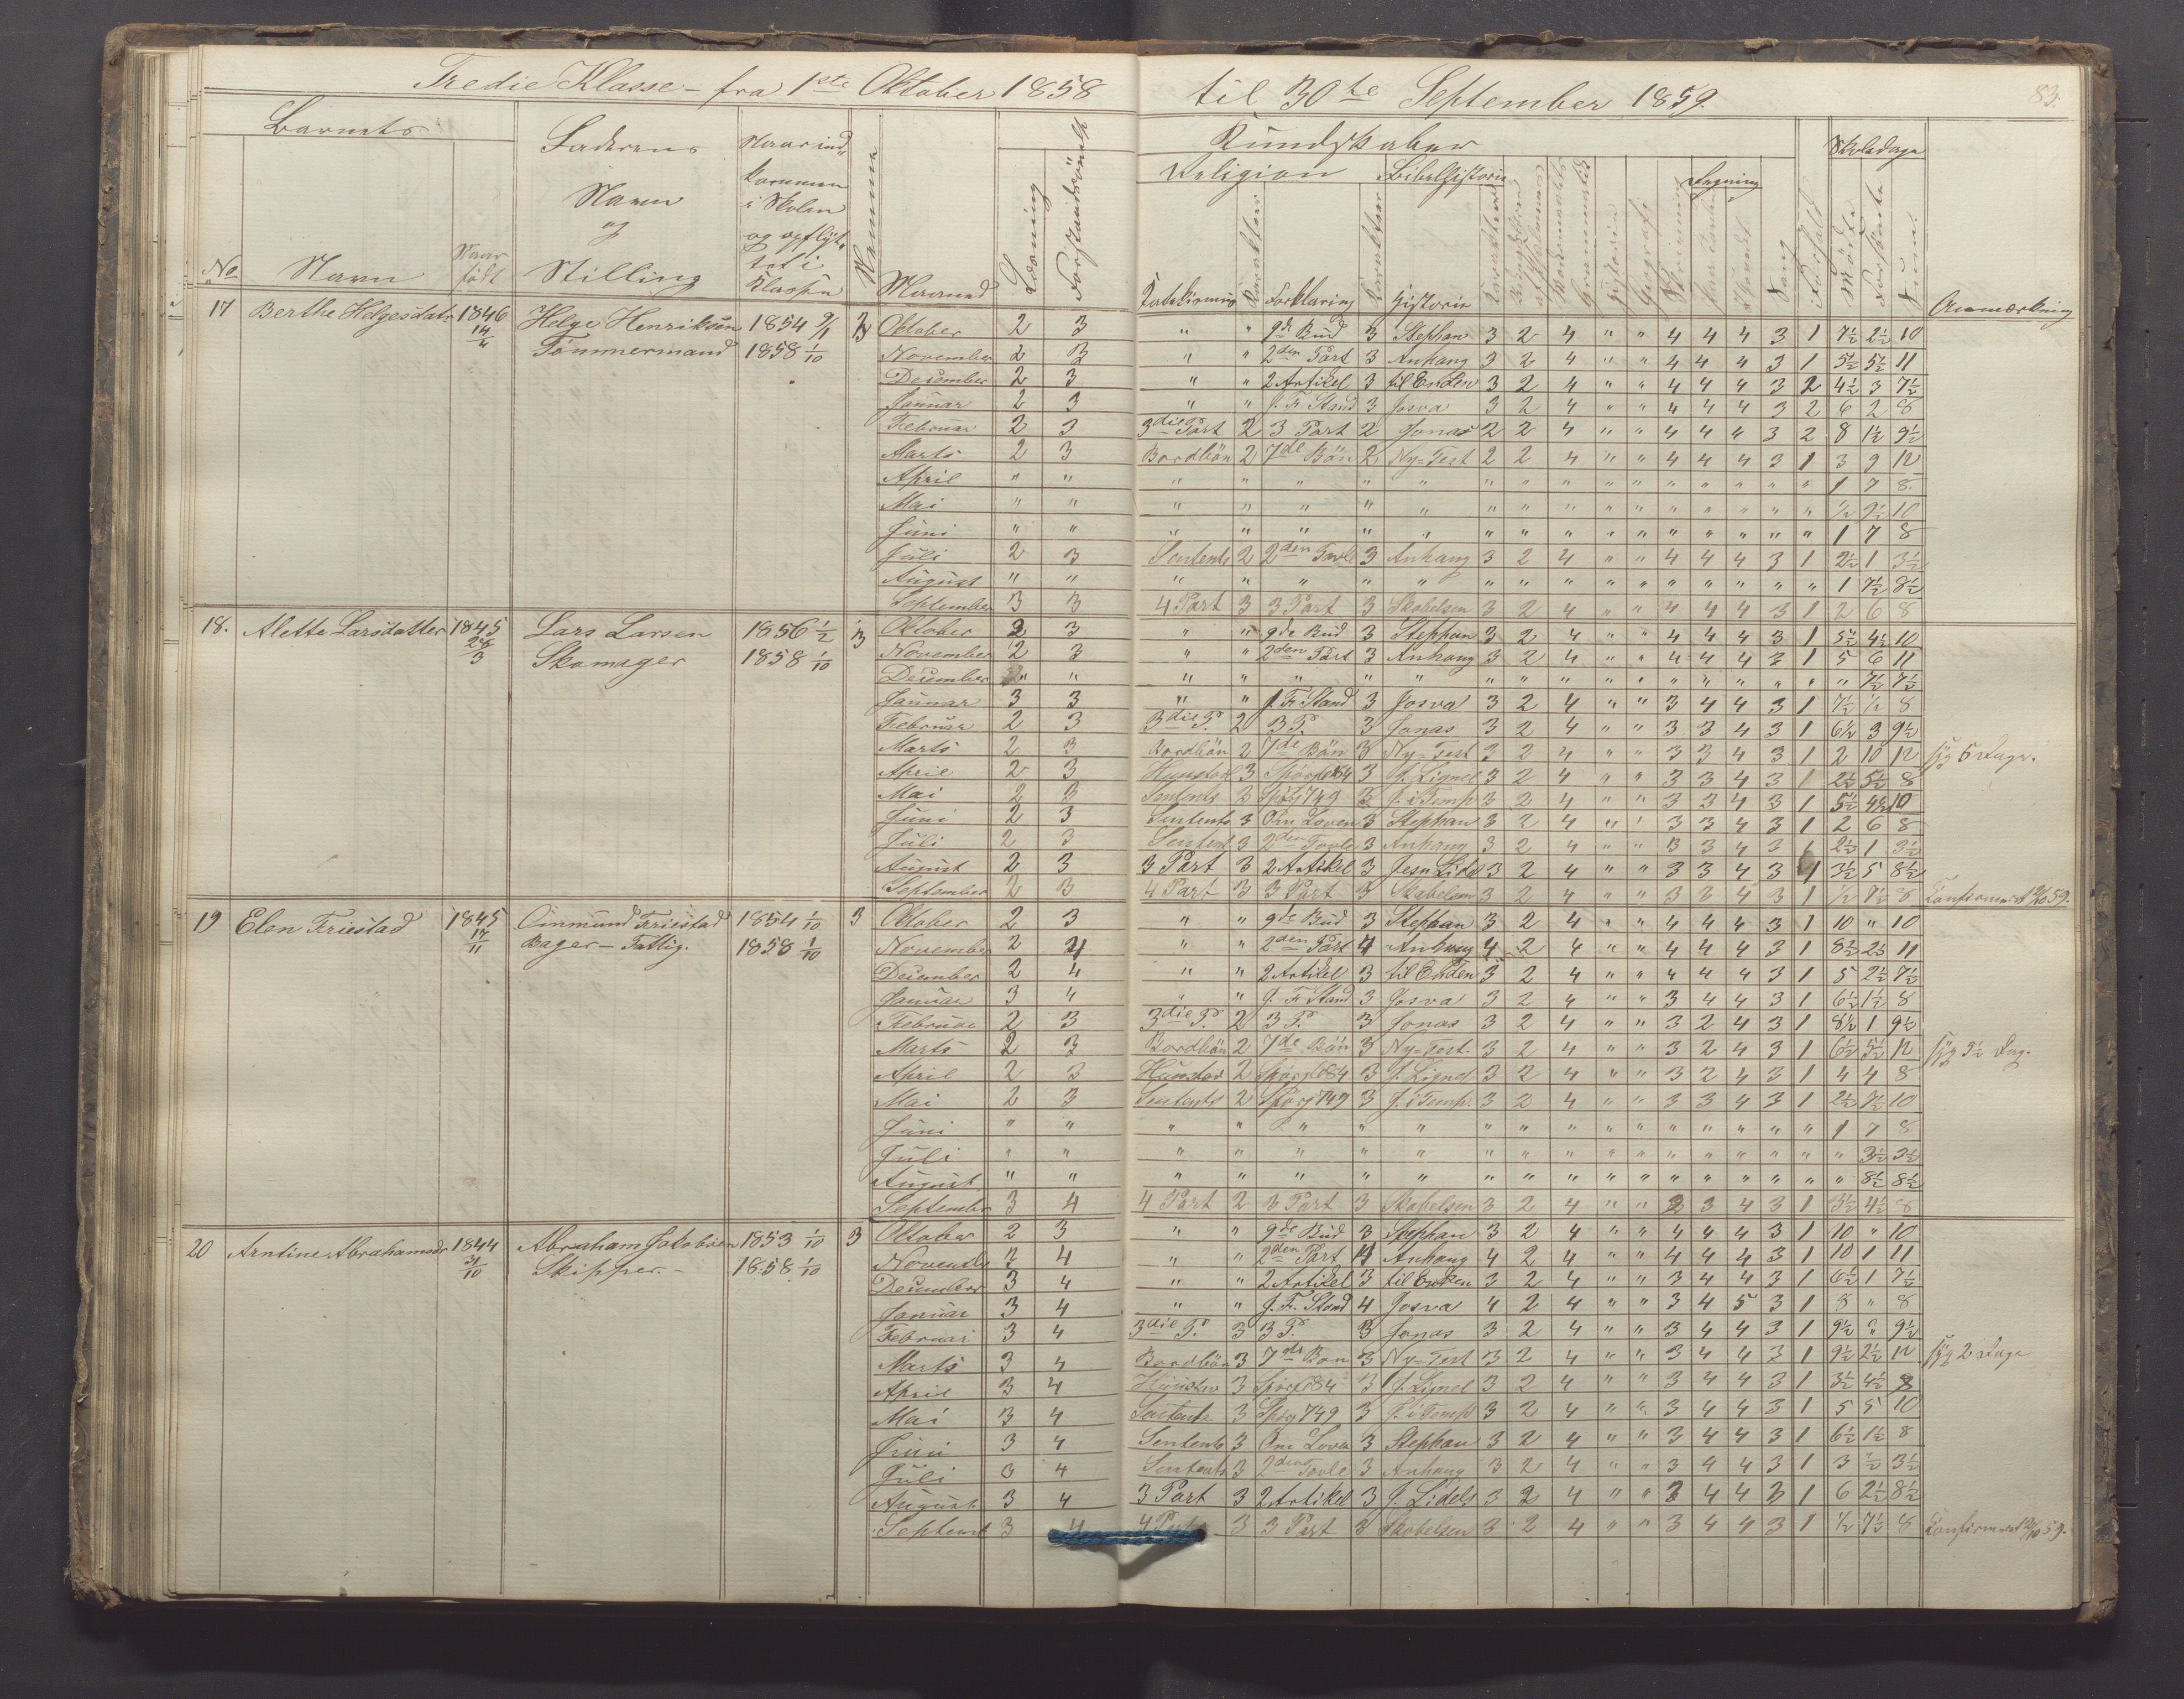 Tredie Klasse - fra 1ste Oktober 1858 til 30te September 1859.
83.
Barnets
Faderens Navn og Stilling
Naar ind kommen i Skolen og opflyttet i Klassen
Kundskaber
Religion Bibelhistorie
Regning
Skoledage
No Navn Naar født Maaned Forklaring Historie Sang Forhold Mødte Forsømte Sum Anmærkning
17 Berthe Helgesdatr 1846 Helge Henriksen 1854 9/1 3 Oktober 2 3 " " 9de Bud 3 Stephan 3 2 4 " " 4 4 4 3 1 7½ 2½ 10
Tømmermand 1858 1/10 November 2 3 " " 2den Part 3 Anhang 3 2 4 " " 4 4 4 3 1 5½ 5½ 11
December 2 3 " " 2 Artikel 3 til Enden 3 2 4 " " 4 4 4 3 2 4½ 3 7½
Januar 2 3 " " J. Fr Stand 3 Josva 3 2 4 " " 4 4 4 3 2 6 2 8
Februar 2 3 3die Part 2 3 Part 2 Jonas 2 2 4 " " 4 4 4 3 2 8 1½ 9½
Marts 2 3 Bordbön 2 7de Bön 2 Ny-Test 2 2 4 " " 4 4 4 3 1 3 9 12
April " " " " " " " " " " " " " " " " " 1 7 8
Mai " " " " " " " " " " " " " " " " " ½ 9½ 10
Juni " " " " " " " " " " " " " " " " " 1 7 8
Juli 2 3 Sentents 2 2den Tavle 3 Anhang 3 2 4 " " 4 4 4 3 1 2½ 1 3½
August " " " " " " " " " " " " " " " " " 1 7½ 8½
September 3 3 4 Part 3 3 Part 3 Skabelsen 3 2 4 " " 4 4 4 3 1 2 6 8
18. Alette Larsdatter 1845 Lars Larsen 1856 1/2 3 Oktober 2 3 " " 9de Bud 3 Stephan 3 2 4 " " 4 4 4 3 1 5½ 4½ 10
28/3 Skomager 1858 1/10 November 2 3 " " 2den Part 3 Anhang 3 2 4 " " 4 4 4 3 1 5 6 11
December " " " " " " " " " " " " " " " " " " 7½ 7½
Januar 3 3 " " J. Fr Stand 3 Josva 3 2 4 " " 3 4 4 3 1 7½ ½ 8
Februar 2 3 3die P. 2 3 P. 3 Jonas 3 2 4 " " 3 3 4 3 1 6½ 3 9½
Marts 2 3 Bordbön 2 7de Bön 3 Ny-Test 3 2 4 " " 3 3 4 3 1 2 10 12 syg 5 Dage.
April 2 3 Hunstav 3 Spörg 684 3 J. Lignel 3 2 4 " " 3 3 4 3 1 2½ 5½ 8
Mai 2 3 Sentents 3 Spörg 749 3 J. i Temp 3 2 4 " " 3 3 4 3 1 5½ 4½ 10
Juni 2 3 Sentents 3 Om Loven 3 Stephan 3 2 4 " " 3 3 4 3 1 2 6 8
Juli 2 3 Sentent 3 2den Tavle 3 Anhang 3 2 4 " " 3 3 4 3 1 2½ 1 3½
August 2 3 3 Part 3 2 Artikel 3 Jesu Lidel 3 2 4 " " 3 3 4 3 1 3½ 5 8½
September 2 3 4 Part 3 3 Part 3 Skabelsen 3 2 4 " " 3 3 4 3 1 ½ 7½ 8 Konfirmeret 2/10 59.
19 Elen Friestad 1845 Ommund Friestad 1854 1/10 3 Oktober 2 3 " " 9de Bud 3 Stephan 3 2 4 " " 4 4 4 3 1 10 " 10
17/11 Bager - Fattig. 1858 1/10 November 2 4 " " 2den Part 4 Anhang 4 2 4 " " 4 4 4 3 1 8½ 2½ 11
December 2 4 " " 2 Artikel 3 til Enden 3 2 4 " " 4 4 4 3 1 5 2½ 7½
Januar 3 4 " " J. Fr Stand 3 Josva 3 2 4 " " 3 4 4 3 1 6½ 1½ 8
Februar 2 3 3die P. 2 3 P. 3 Jonas 3 2 4 " " 3 2 4 3 1 8½ 1 9½
Marts 2 3 Bordbön 2 7de Bön 3 Ny-Test. 3 2 4 " " 3 2 4 3 1 6½ 5½ 12 syg 3½ Dag.
April 2 3 Hunstav 2 Spörg 684 3 J. Lignel 3 2 4 " " 3 2 4 3 1 4 4 8
Mai 2 3 Sentents 2 Spörg 749 3 J. i Temp. 3 2 4 " " 3 3 4 3 1 2½ 7½ 10
Juni " " " " " " " " " " " " " " " " " 1 7 8
Juli " " " " " " " " " " " " " " " " " " 3½ 3½
August " " " " " " " " " " " " " " " " " " 8½ 8½
September 3 4 4 Part 2 3 Part 3 Skabelsen 3 2 4 " " 3 3 4 3 1 3½ 4½ 8
20 Arntine Abrahamsdr 1844 Abraham Jakobsen 1853 1/10 3 Oktober 2 3 " " 9de Bud 3 Stephan 3 2 4 " " 4 4 4 3 1 10 " 10
31/10 Skipper. - 1858 1/10 November 3 4 " " 2den Part 4 Anhang 4 2 4 " " 4 4 4 3 1 10 1 11
December 3 4 " " 2 Artikel 3 til Enden 3 2 4 " " 3 4 4 3 1 6½ 1 7½
Januar 3 4 " " J. Fr. Stand 4 Josva 4 2 4 " " 3 4 5 3 1 8 " 8
Februar 3 4 3die P. 3 3 P. 3 Jonas 3 2 4 " " 3 4 4 3 1 9½ " 9½
Marts 3 4 Bordbön 3 7de Bön 3 Ny-Test 3 2 4 " " 3 4 4 3 1 9½ 2½ 12 syg 2 Dage
April 3 4 Hunstav 3 Spörg 684 3 J. Lignel 3 2 4 " " 3 4 4 3 1 3½ 4½ 8
Mai 3 4 Sentents 3 Spörg 749 3 J. i Temp 3 2 4 " " 3 4 4 3 1 5 5 10
Juni 3 4 Sentents 3 Om Loven 3 Stephan 3 2 4 " " 3 4 4 3 1 6½ 1½ 8
Juli 3 4 Sentents 3 2den Tavle 3 Anhang 3 2 4 " " 3 4 4 3 1 3 ½ 3½
August 3 4 3 Part 3 2 Artikel 3 J. Lidels 3 2 4 " " 3 4 4 3 1 6 2½ 8½
Septembr 3 4 4 Part 3 3 Part 3 Skabelsen 3 2 4 " " 3 4 4 3 1 ½ 7½ 8 Konfirmeret 2/10 59.